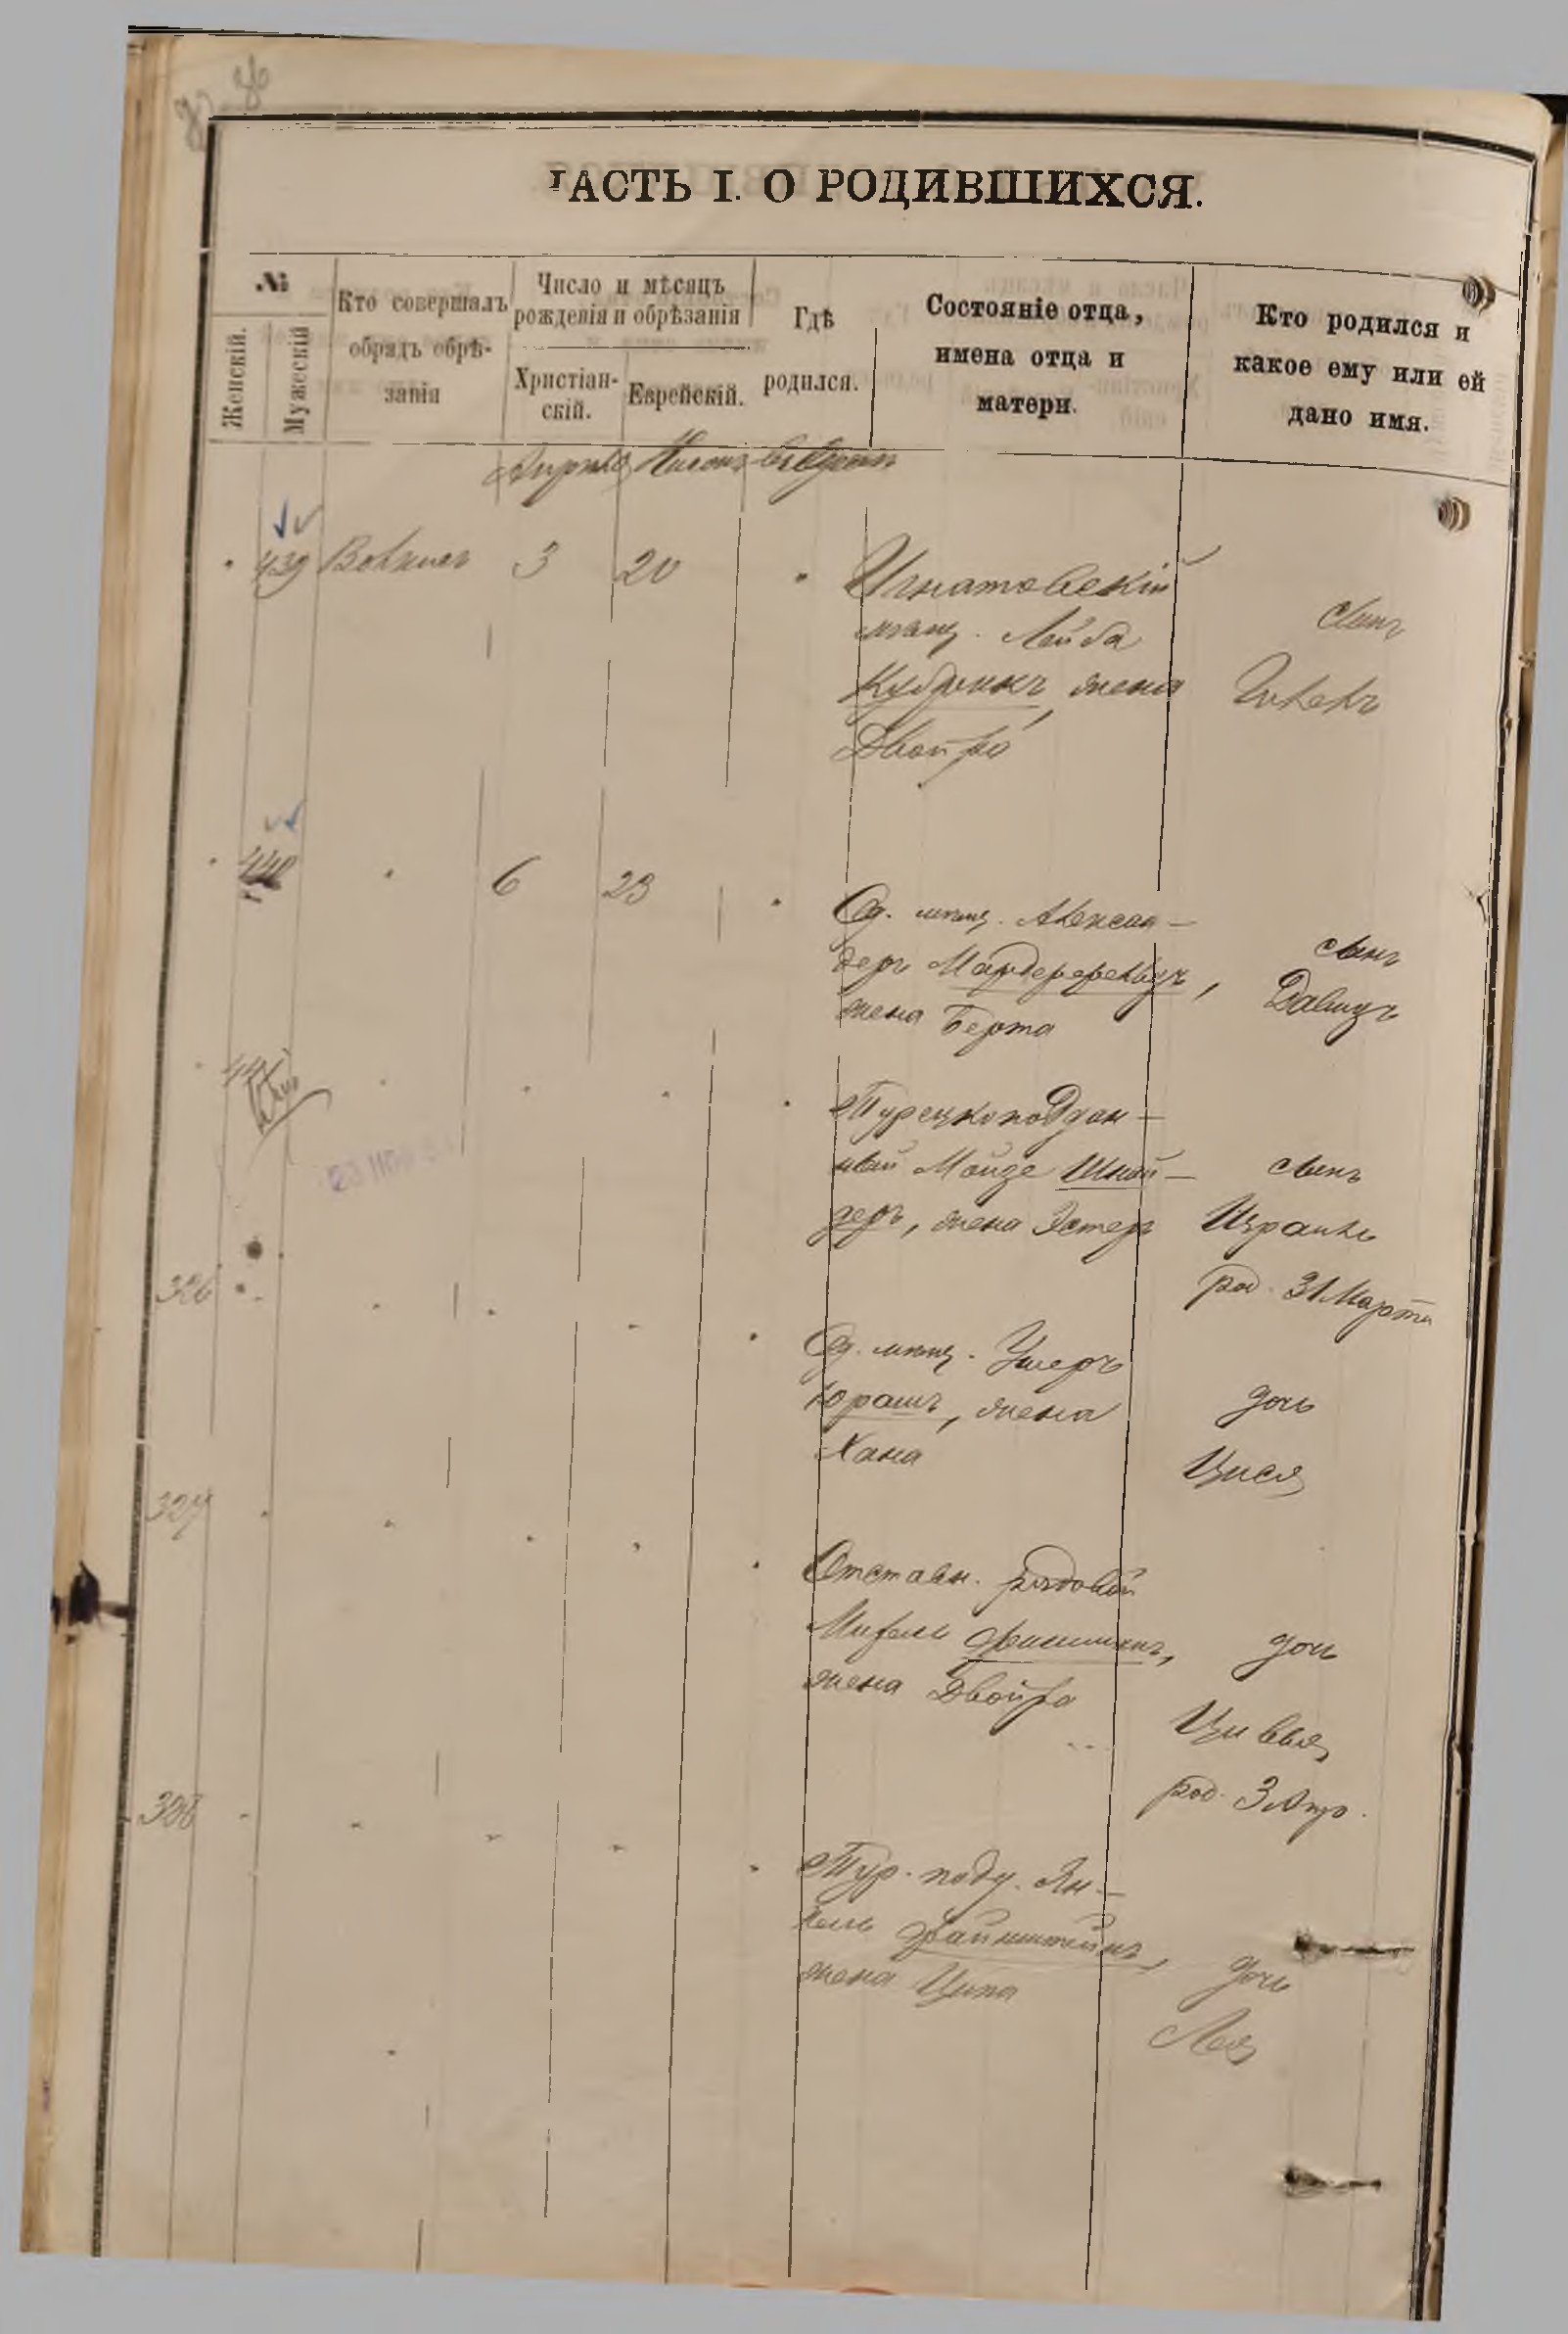 ЧАСТЬ I. О РОДИВШИХСЯ.
№
Женскій.
Мужескій
Кто совершалъ
обрядъ обрѣ-
занія
Число и мѣсяцъ
рожденія и обрѣзанія
Христіан-
скій.
Еврейскій.
Гдѣ
родился.
Состояніе отца,
имена отца и
матери.
Кто родился и
какое ему или ей
дано имя.
Апрѣль Нисонъ въ Одессѣ
439
3
20
Игнатовскій
мѣщ. Лейба
Кубрикъ, жена
Двойра
сынъ
440
6
23
Од. мѣщ. Алексан-
деръ
жена Берта
сынъ
Давидъ
441
Турецкоподдан-
ный Мойзе Шней-
деръ, жена Эстеръ
сынъ
Израиль
род. 31 Марта
23
326
Од. мѣщ. Ушеръ
Юрашъ, жена
Хана
дочь
Цися
327
Отставн. рядовой
Фишманъ,
жена Двойра
дочь
Цивья
род. 3 Апр.
328
Тур. подд. Ян-
кель Файнштейнъ,
жена Ципа
дочь
Лея